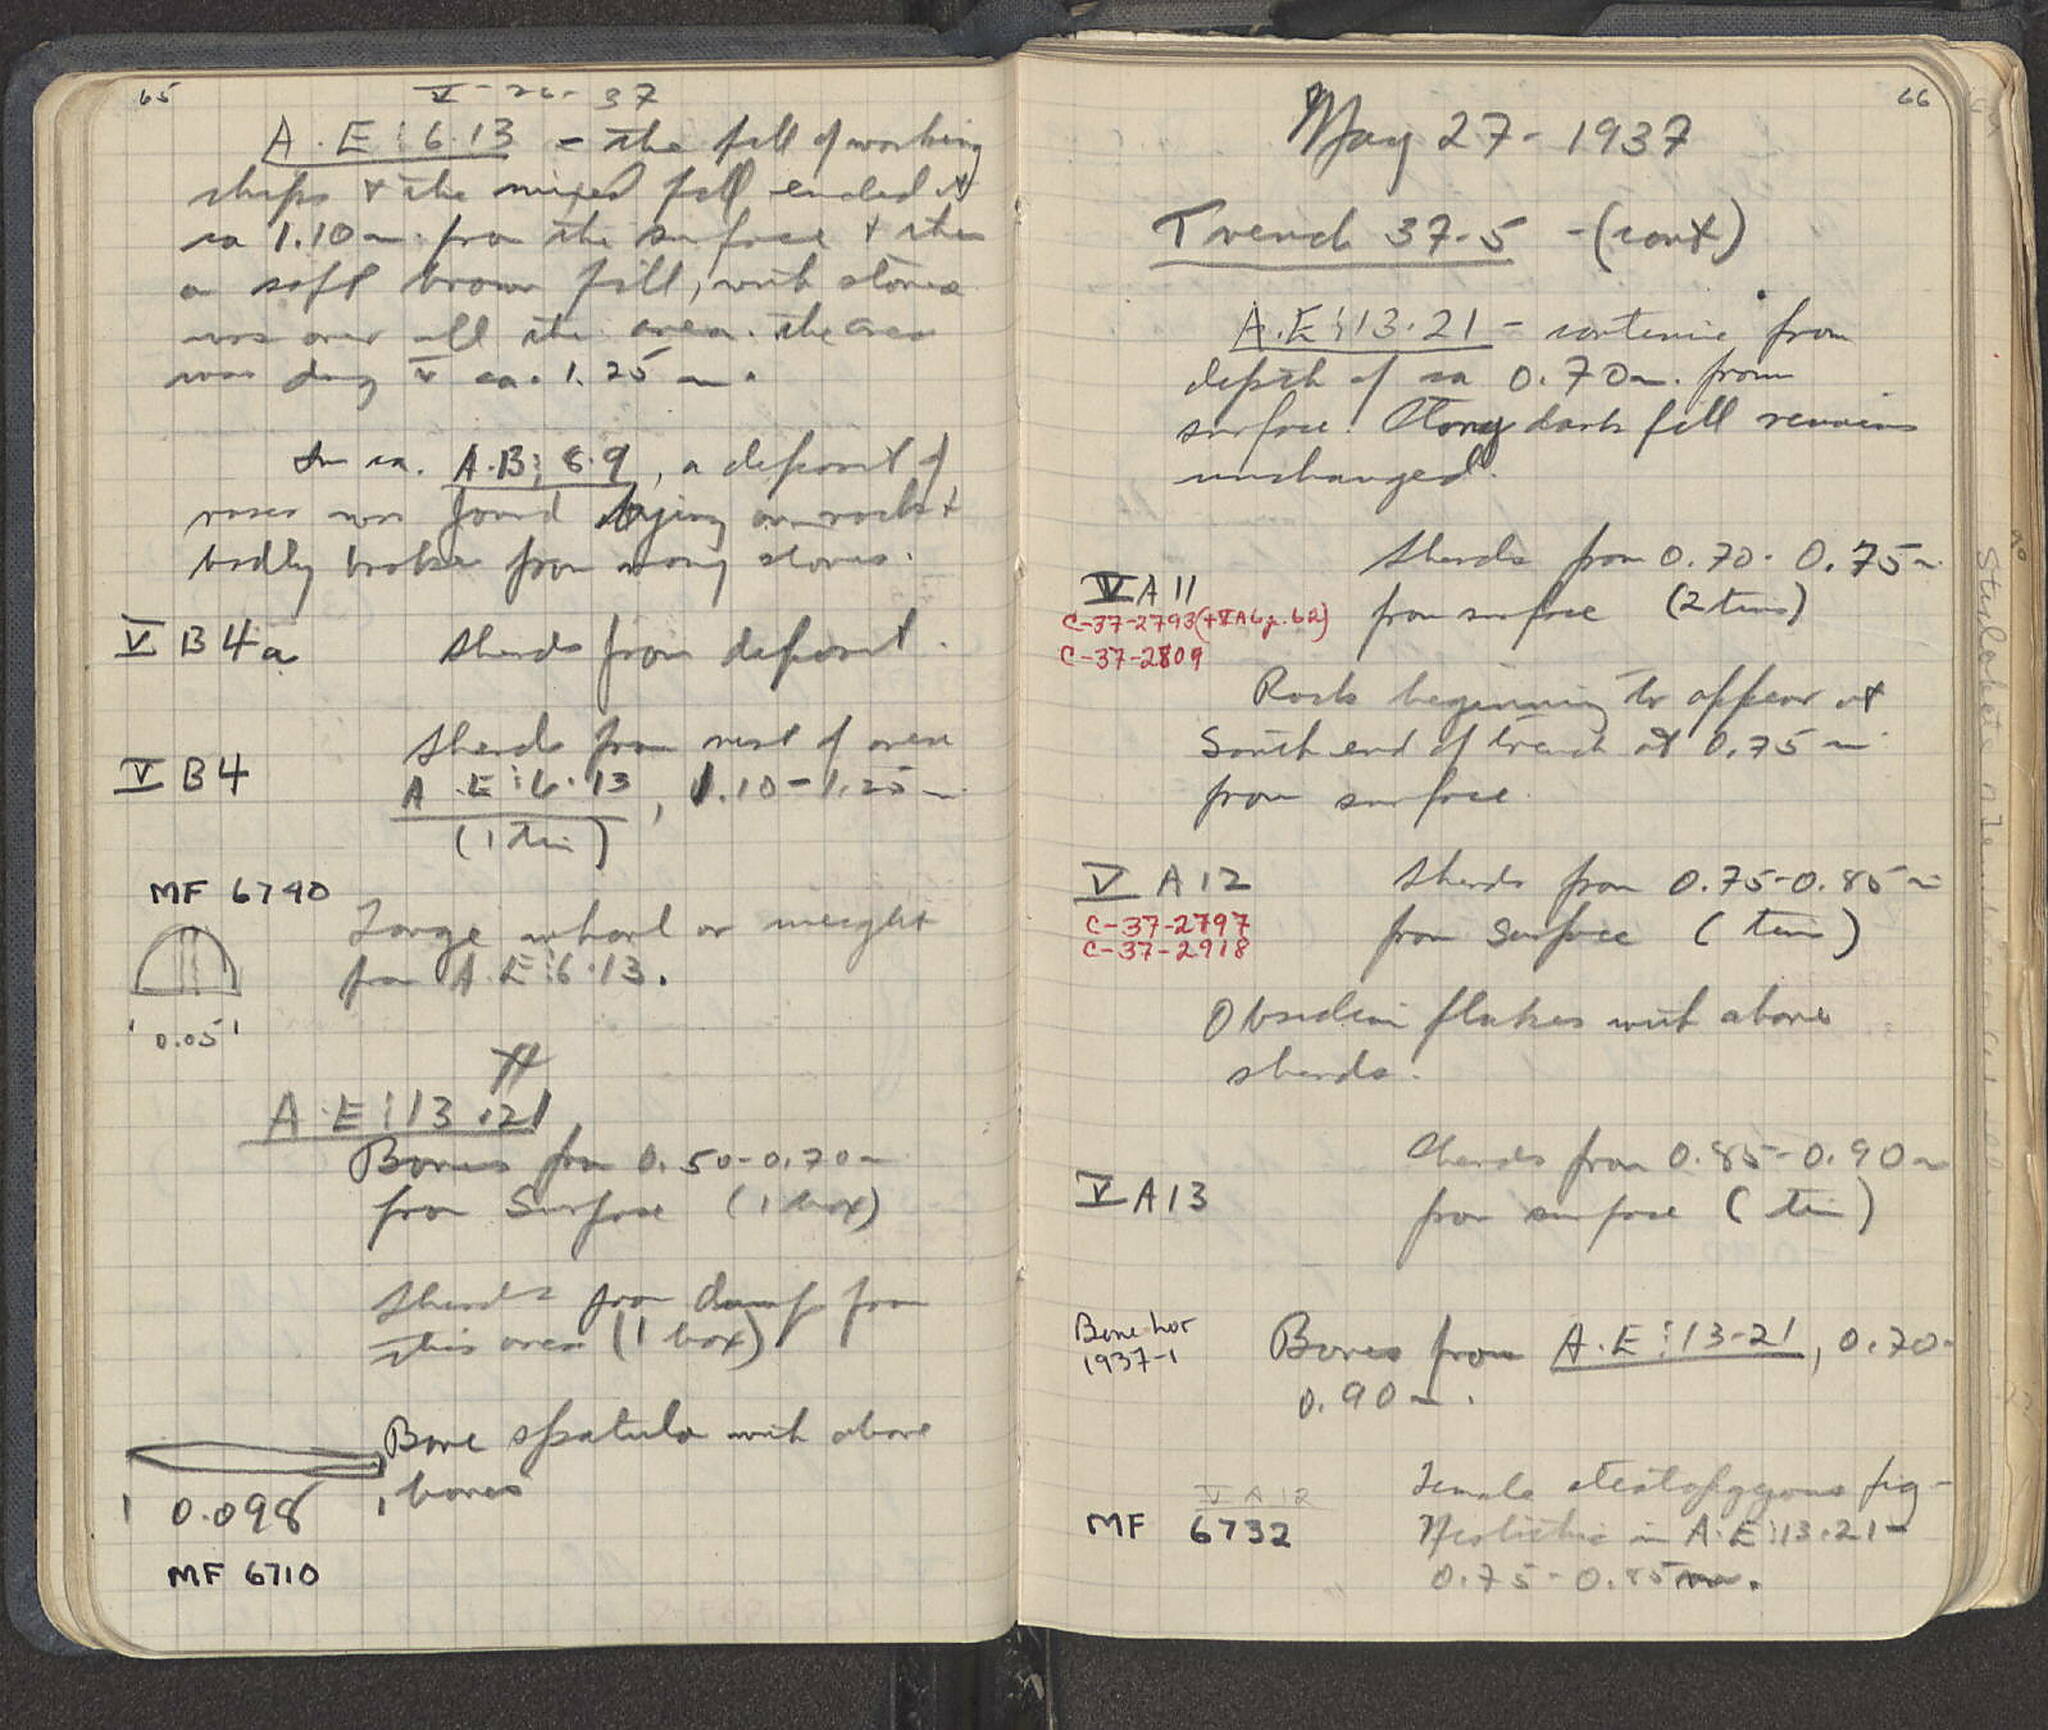 65
V-26-37
A.E:6.13 - the fill of working
chips & the mixed fill ended at
ca 1.10 m. from the surface & then
a soft brown fill, with stones
was over all the area. The area
was dug to ca. 1.25 m.
In ca. A.B:8.9, a deposit of
vases was found lying on rocks &
badly broken from many stones.
V B4a
Sherds from deposit.
V B4
Sherds from rest of area
A.E:6.13, 1.10-1.25 m.
(1 tin)
MF 6740
Large whorl or weight
from A.E:6.13.
0.05
A.E:13.21
Bones from 0.50-0.70 m
from Surface (1 box)
Sherds from dump from
this area (1 box)
Bone spatula with above
bones
0.098
MF 6710
66
May 27-1937
Trench 37-5 -(cont)
A.E:13.21 - continue from
depth of ca 0.70 m. from
surface. Stony dark fill remains
unchanged.
V A 11
C-37-2793 (+VA6 p.62)
C-37-2809
Sherds from 0.70-0.75 m
from surface (2 tins)
Rocks beginning to appear at
South end of trench at 0.75 m
from surface.
V A 12
C-37-2797
C-37-2918
Sherds from 0.75-0.85 m
from Surface ( tins)
Obsidian flakes with above
sherds.
V A 13
Sherds from 0.85-0.90 m
from surface ( tin)
Bone Lot
1937-1
Bones from A.E:13-21, 0.70-
0.90 m.
V A 12
MF 6732
Female steatopygous fig-
Neolithic in A.E:13.21-
0.75-0.85 m.